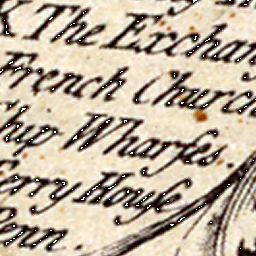 K The Exchan
French Church
Ship Wharfes.
Ferry House
Penn.